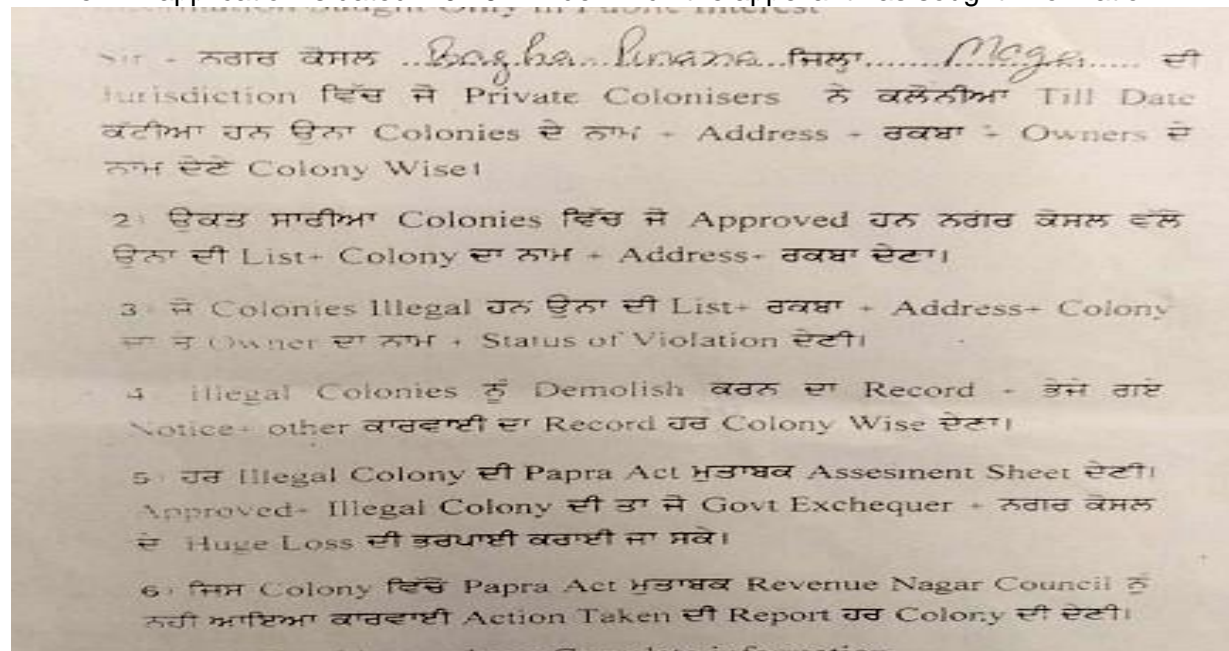 Sir - ਨਗਰ ਕੌਸਲ ..Bagha..Purana..ਜਿਲ੍ਹਾ.......Moga...... ਦੀ
Jurisdiction ਵਿੱਚ ਜੋ Private Colonisers ਨੇ ਕਲੋਨੀਆ Till Date
ਕੱਟੀਆ ਹਨ ਉਨਾ Colonies ਦੇ ਨਾਮ + Address + ਰਕਬਾ + Owners ਦੇ
ਨਾਮ ਦੇਣੇ Colony Wise।
2) ਉਕਤ ਸਾਰੀਆ Colonies ਵਿੱਚ ਜੋ Approved ਹਨ ਨਗਰ ਕੌਸਲ ਵੱਲੋ
ਉਨਾ ਦੀ List+ Colony ਦਾ ਨਾਮ + Address+ ਰਕਬਾ ਦੇਣਾ।
3) ਜੋ Colonies Illegal ਹਨ ਉਨਾ ਦੀ List+ ਰਕਬਾ + Address+ Colony
ਦਾ ਤੇ Owner ਦਾ ਨਾਮ + Status of Violation ਦੇਣੀ।
4 illegal Colonies ਨੂੰ Demolish ਕਰਨ ਦਾ Record + ਭੇਜੇ ਗਏ
Notice+ other ਕਾਰਵਾਈ ਦਾ Record ਹਰ Colony Wise ਦੇਣਾ।
5) ਹਰ Illegal Colony ਦੀ Papra Act ਮੁਤਾਬਕ Assesment Sheet ਦੇਣੀ।
Approved+ Illegal Colony ਦੀ ਤਾ ਜੋ Govt Exchequer + ਨਗਰ ਕੌਸਲ
ਦੇ Huge Loss ਦੀ ਭਰਪਾਈ ਕਰਾਈ ਜਾ ਸਕੇ।
6) ਜਿਸ Colony ਵਿੱਚੋ Papra Act ਮੁਤਾਬਕ Revenue Nagar Council ਨੂੰ
ਨਹੀ ਆਇਆ ਕਾਰਵਾਈ Action Taken ਦੀ Report ਹਰ Colony ਦੀ ਦੇਣੀ।